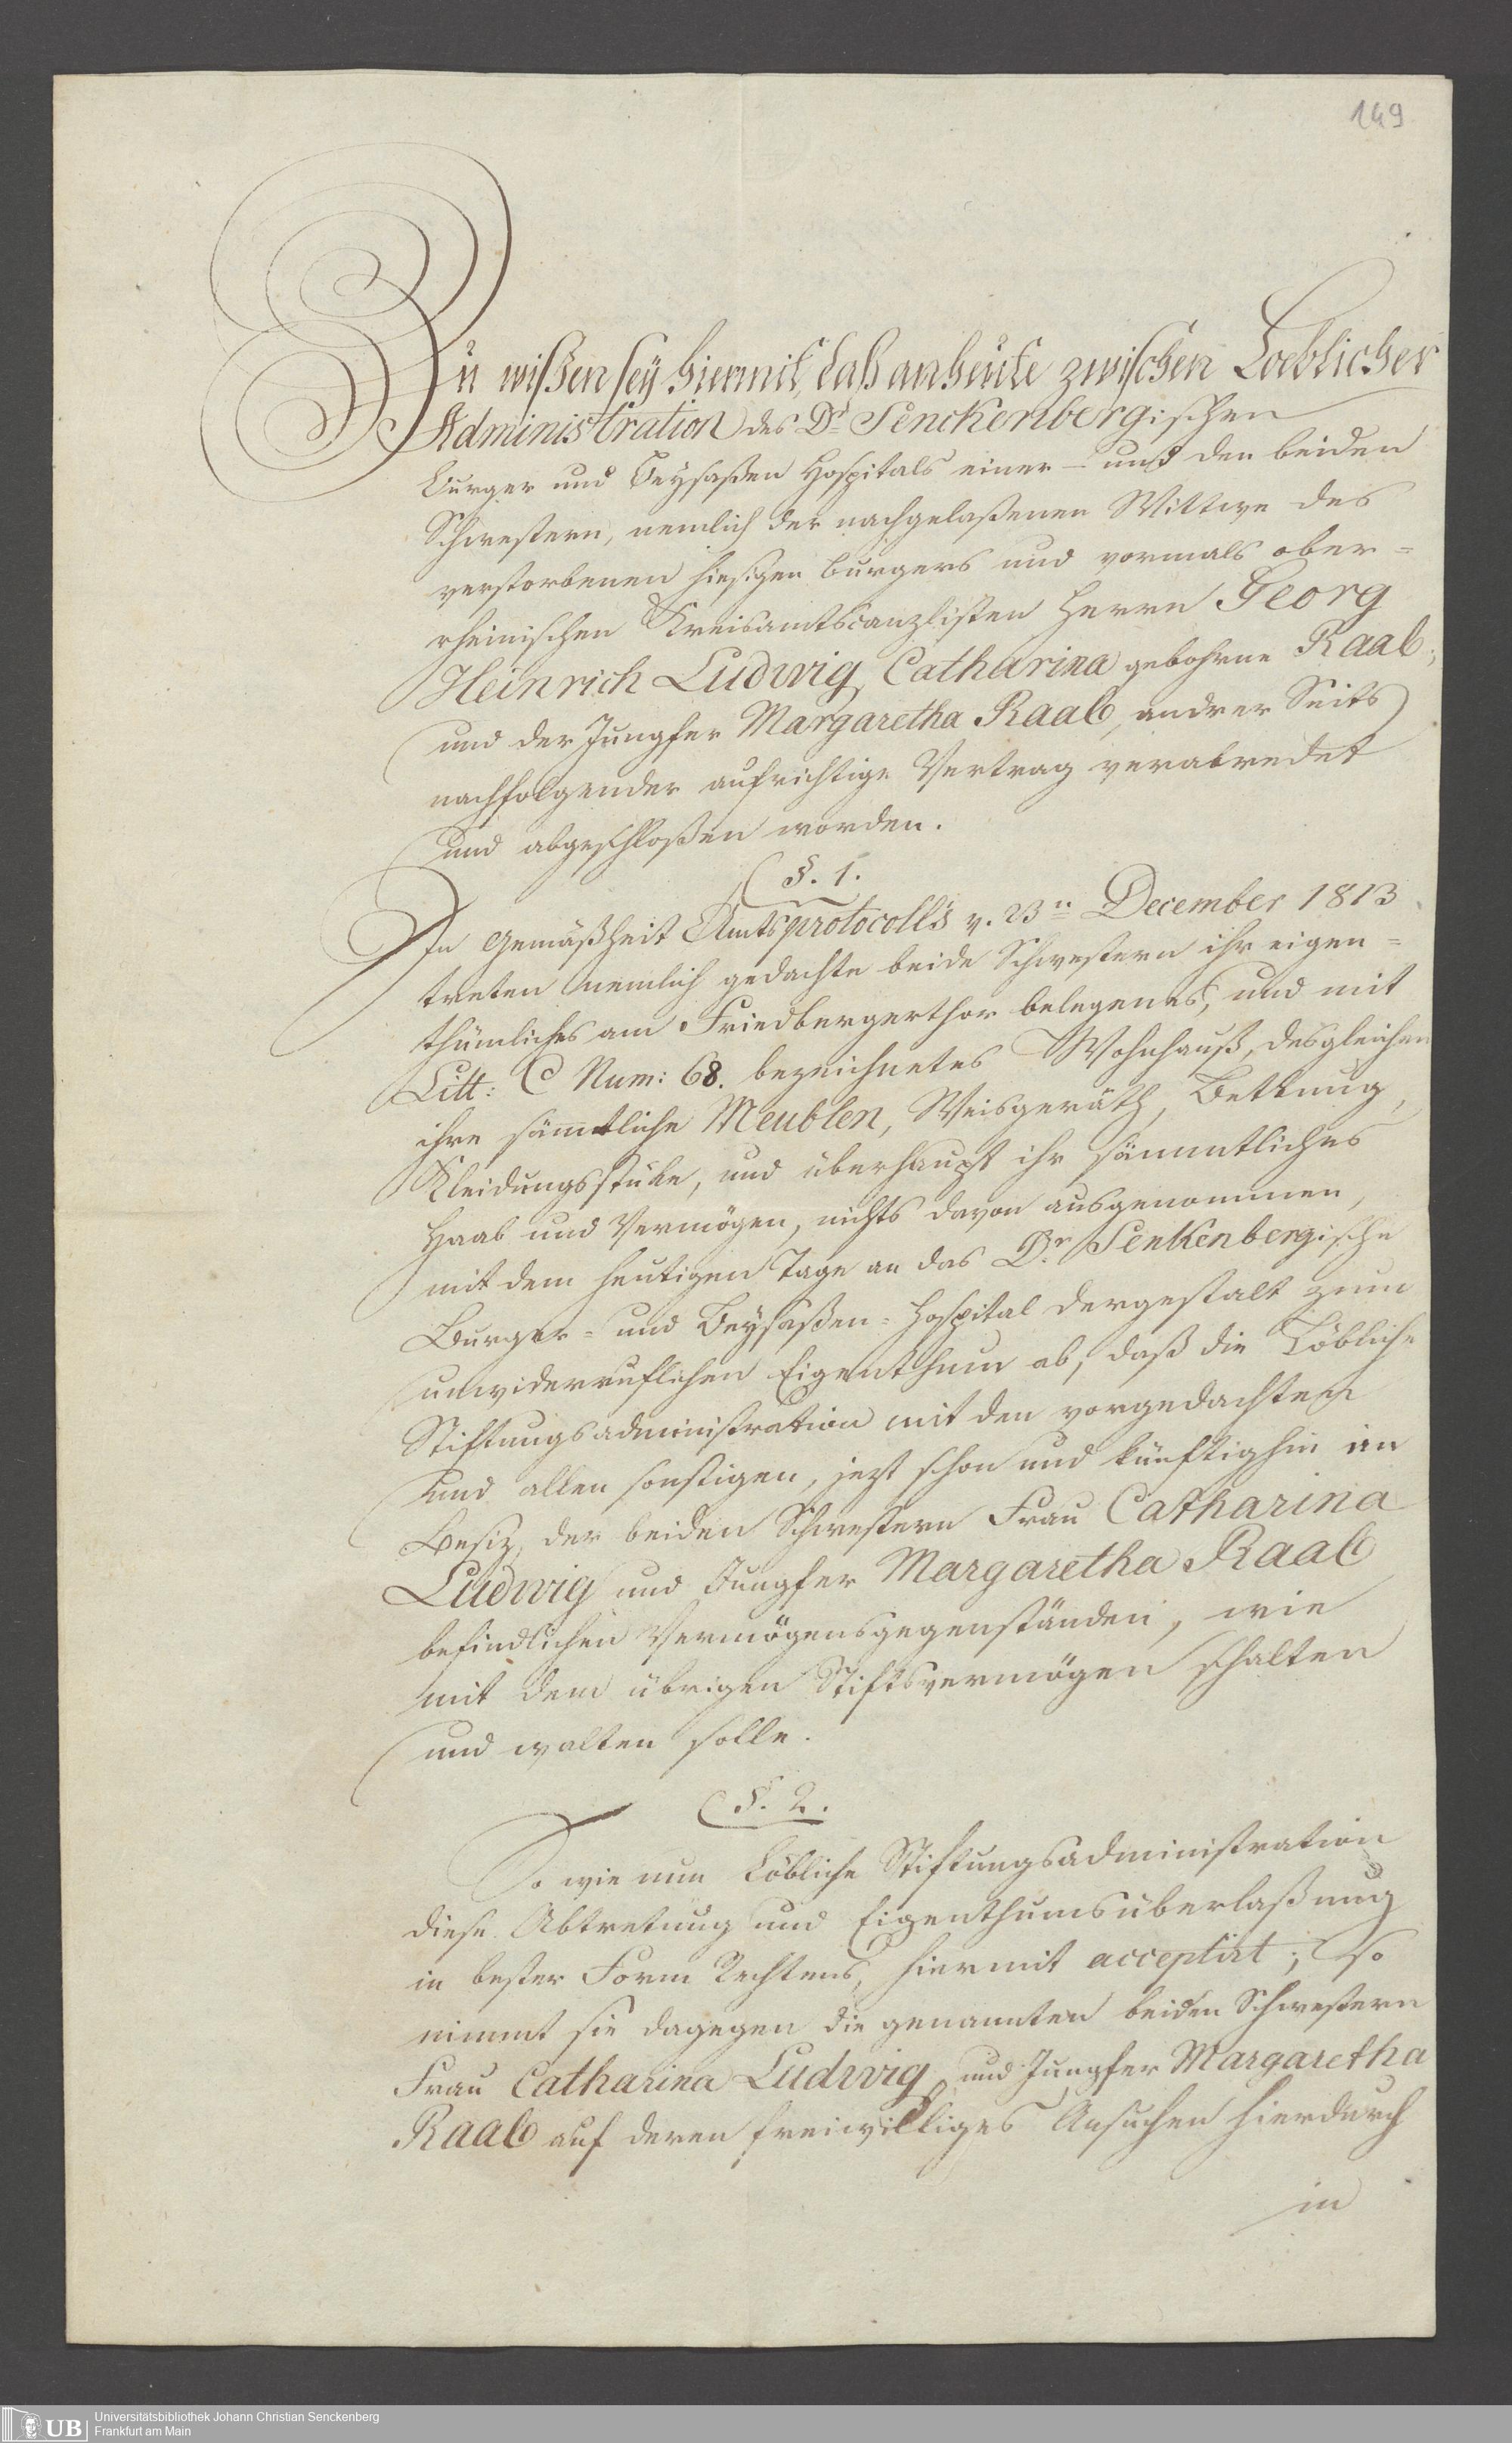 149
Zu wißen sey hiermit, daß anheute zwischen Loeblicher
Administration des Dr Senckenbergischen
Burger und Beysaßen Hospitals einer- und den beiden
Schwestern, nemlich der nachgelaßenen Wittwe des
verstorbenen hiesigen Burgers und vormals ober=
rheinischen Kreisamtscanzlisten Herrn Georg
Heinrich Ludwig, Catharina gebohrne Raab;
und der Jungfer Margaretha Raab, andrer Seits
nachfolgender aufrichtige Vertrag verabredet
und abgeschloßen worden.
§. 1.
In Gemäßheit Amtsprotocolls v. 23n December 1813
treten nemlich gedachte beide Schwestern ihr eigen=
thümliches am Friedbergerthor belegenes, und mit
Litt: C Num: 68. bezeichnetes Wohnhauß, desgleichen
ihre sämtliche Meublen, Weisgeräth, Bettung,
Kleidungsstüke, und überhaupt ihr sämmtliches
Haab und Vermögen, nichts davon ausgenommen,
mit dem heutigen Tage an das Dr. Senkenbergische
Burger= und Beysaßen=Hospital dergestalt zum
unwiderruflichen Eigenthum ab, daß die Löbliche
Stiftungsadministration mit den vorgedachten
und allen sonstigen, jezt schon und künftighin im
Besiz, der beiden Schwestern Frau Catharina
Ludwig und Jungfer Margaretha Raab
befindlichen Vermögensgegenständen, wie
mit dem übrigen Stiftsvermögen schalten
und walten solle.
§. 2.
So wie nun Löbliche Stiftungsadministration
diese Abtretung und Eigenthumsüberlaßung
in bester Form Rechtens, hiermit acceptirt; so
nimmt sie dagegen die genannten beiden Schwestern
Frau Catharina Ludwig und Jungfer Margaretha
Raab auf deren freiwilliges Ansuchen hierdurch
in
UB
Universitätsbibliothek Johann Christian Senckenberg
Frankfurt am Main